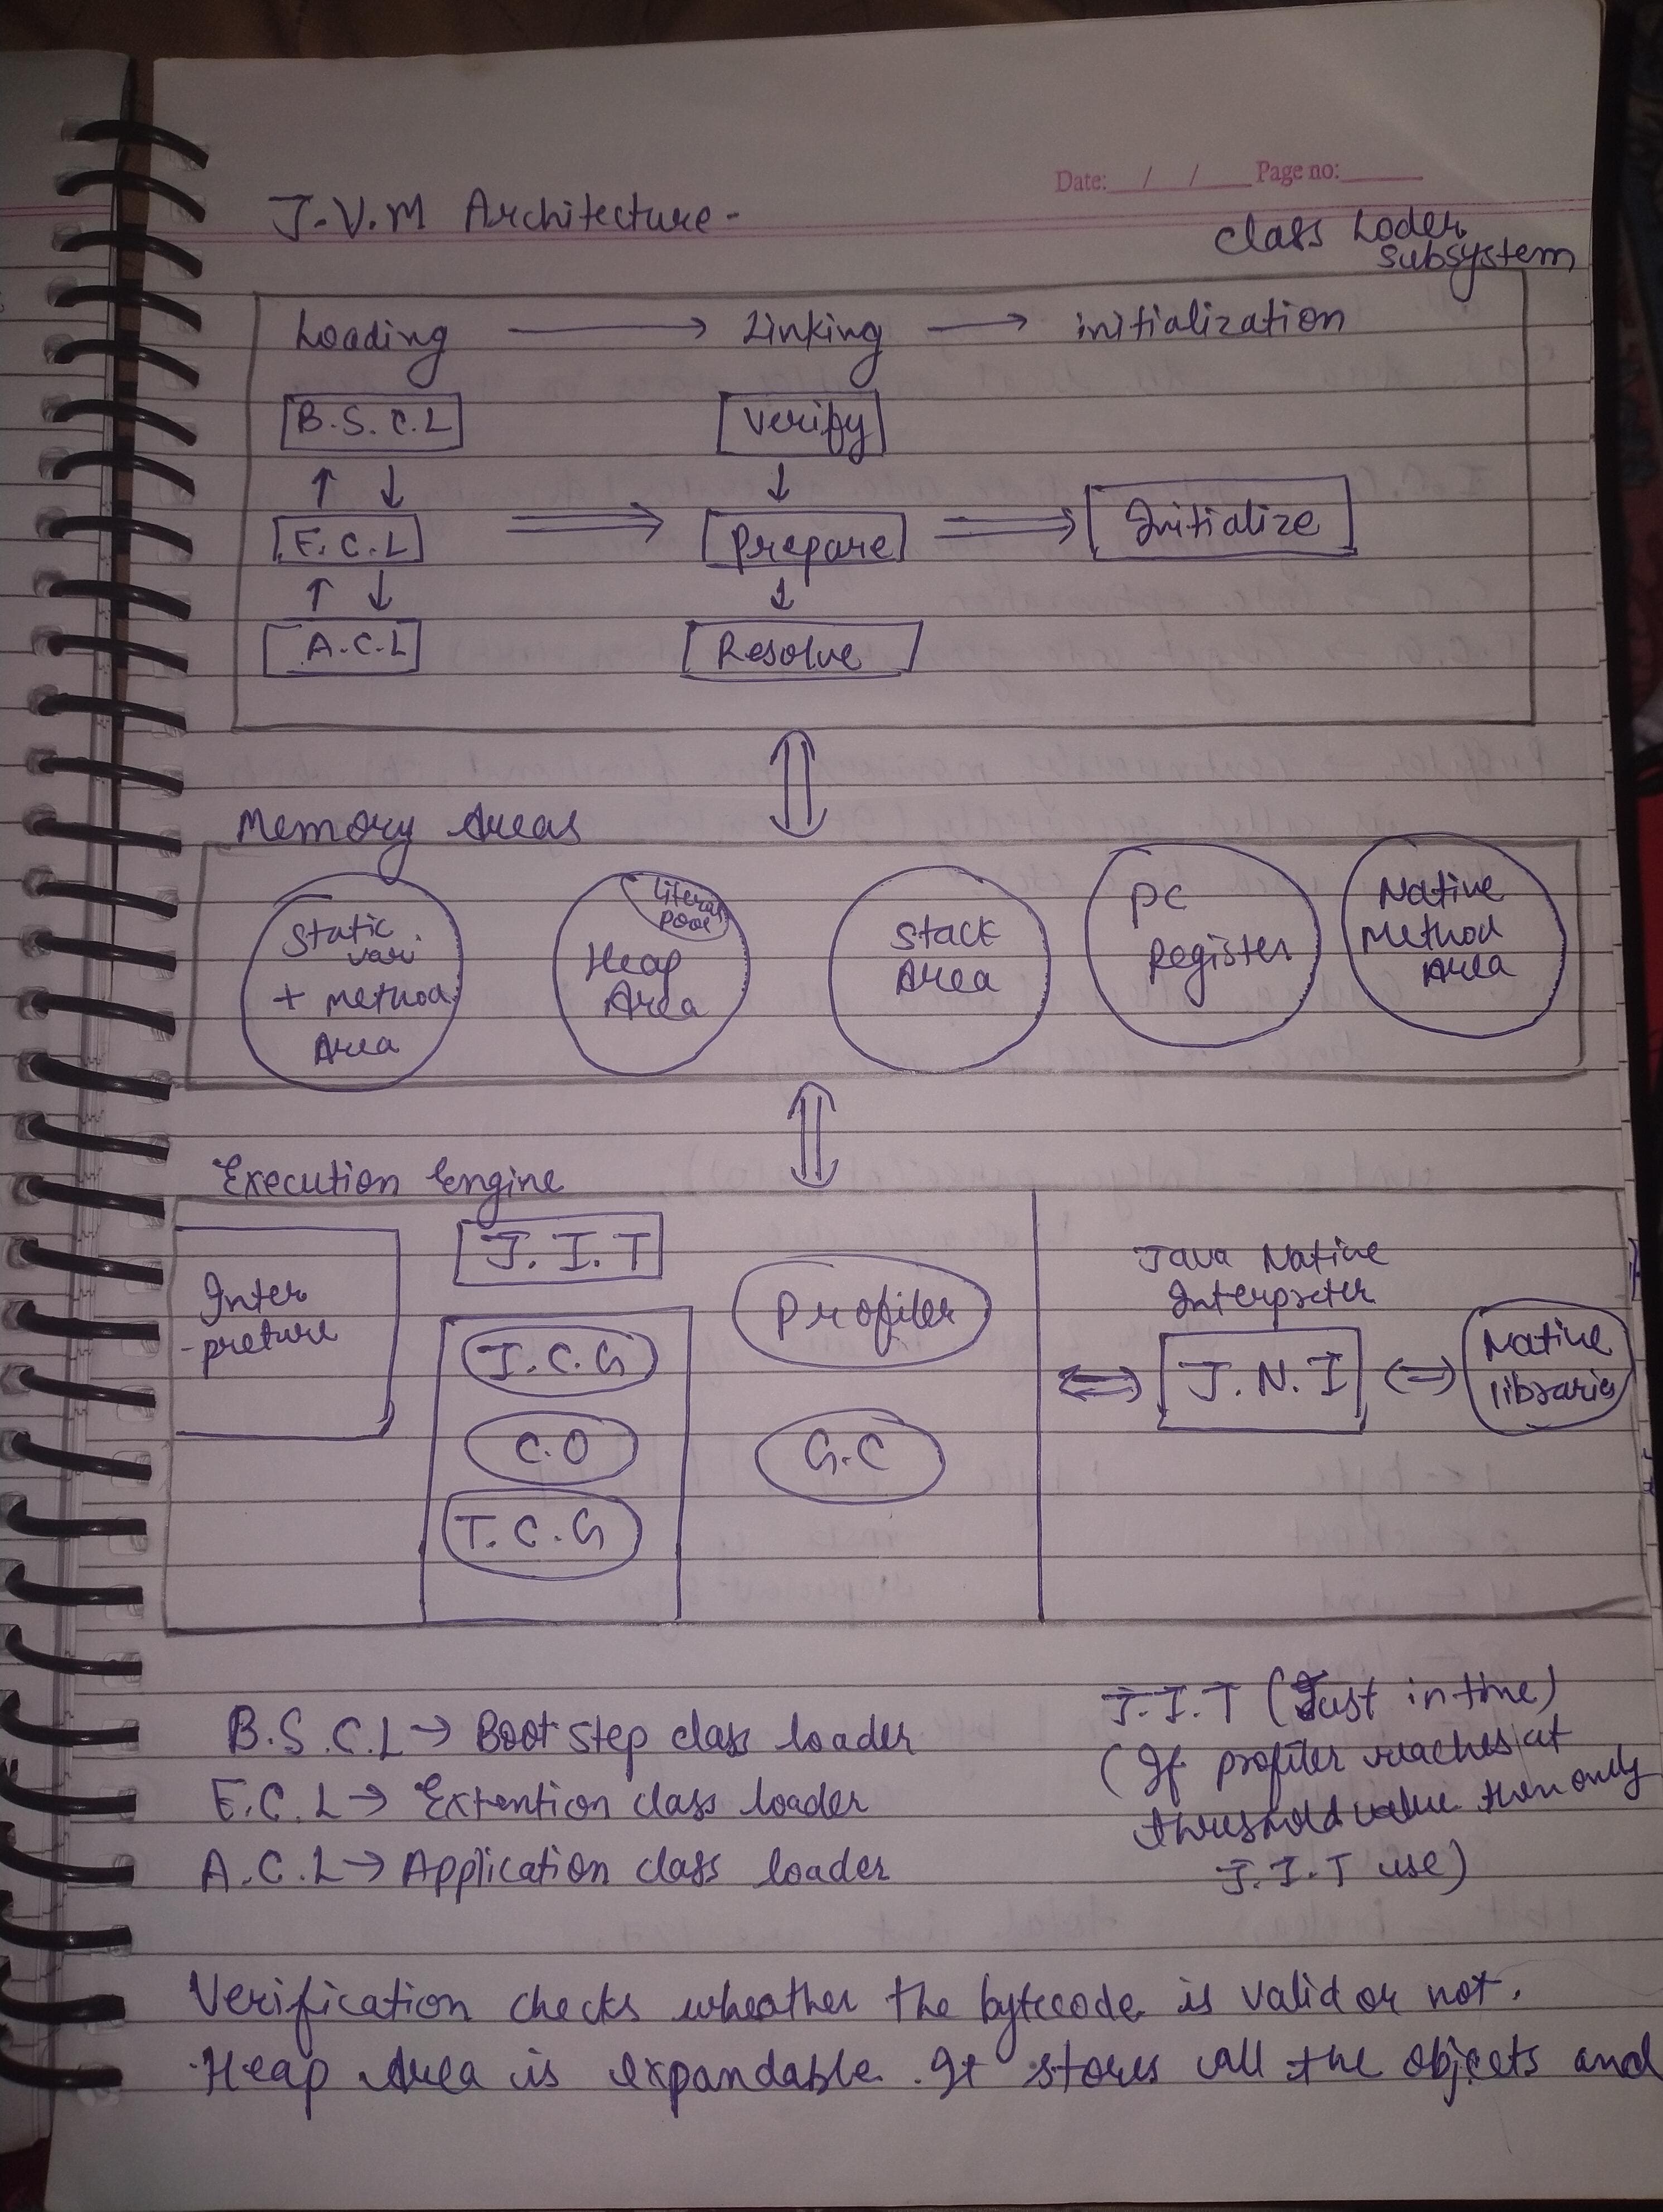 Date: / / Page no:
J.V.M Architecture -
Class Loder
Subsystem
Loading → Linking → initialization
B.S.C.L Verify
↑ ↓ ↓
E.C.L ⇒ Prepare ⇒ Initialize
↑ ↓ ↓
A.C.L Resolve
Memory Areas
Static
vari
+ method
Area
Literal
pool
Heap
Area
Stack
Area
PC
Register
Native
Method
Area
Execution Engine
Inter
-preture
J.I.T
I.C.G
C.O
T.C.G
Profiler
G.C
Java Native
Interpreter
⇔ J.N.I ⇔
Native
libraries
B.S.C.L → Boot step class loader
E.C.L → Extention class loader
A.C.L → Application class loader
J.I.T (Just in time)
(If profiler reaches at
threshold value then only
J.I.T use)
Verification checks wheather the bytecode is valid or not.
Heap Area is expandable. It stores all the objects and